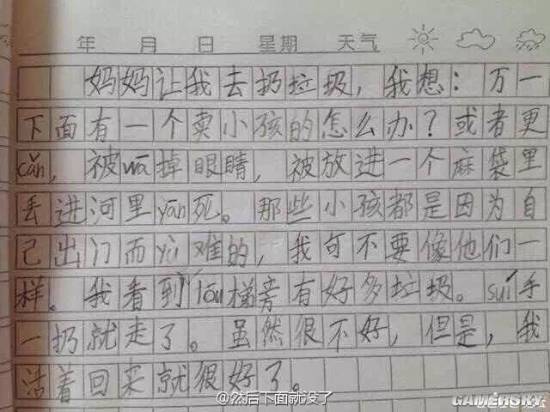 年 月 日 星期 天气
妈妈让我去扔垃圾，我想：万一
下面有一个卖小孩的怎么办？或者更
cǎn，被wā掉眼睛，被放进一个麻袋里
丢进河里yān死。那些小孩都是因为自
己出门而yù难的，我可不要像他们一
样。我看到lóu梯旁有好多垃圾。suí手
一扔就走了。虽然很不好，但是，我
活着回来就很好了。
@然后下面就没了
GAMERSKY